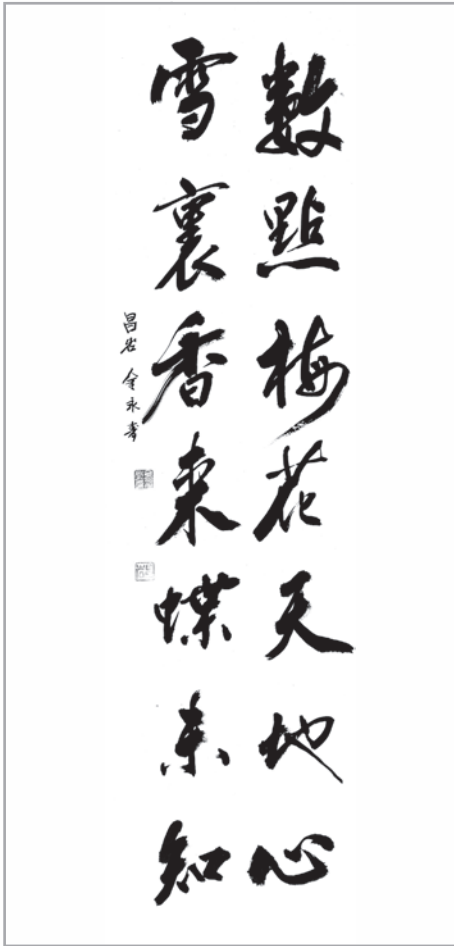 數點梅花天地心
雪裏香來蝶未知
昌 金永